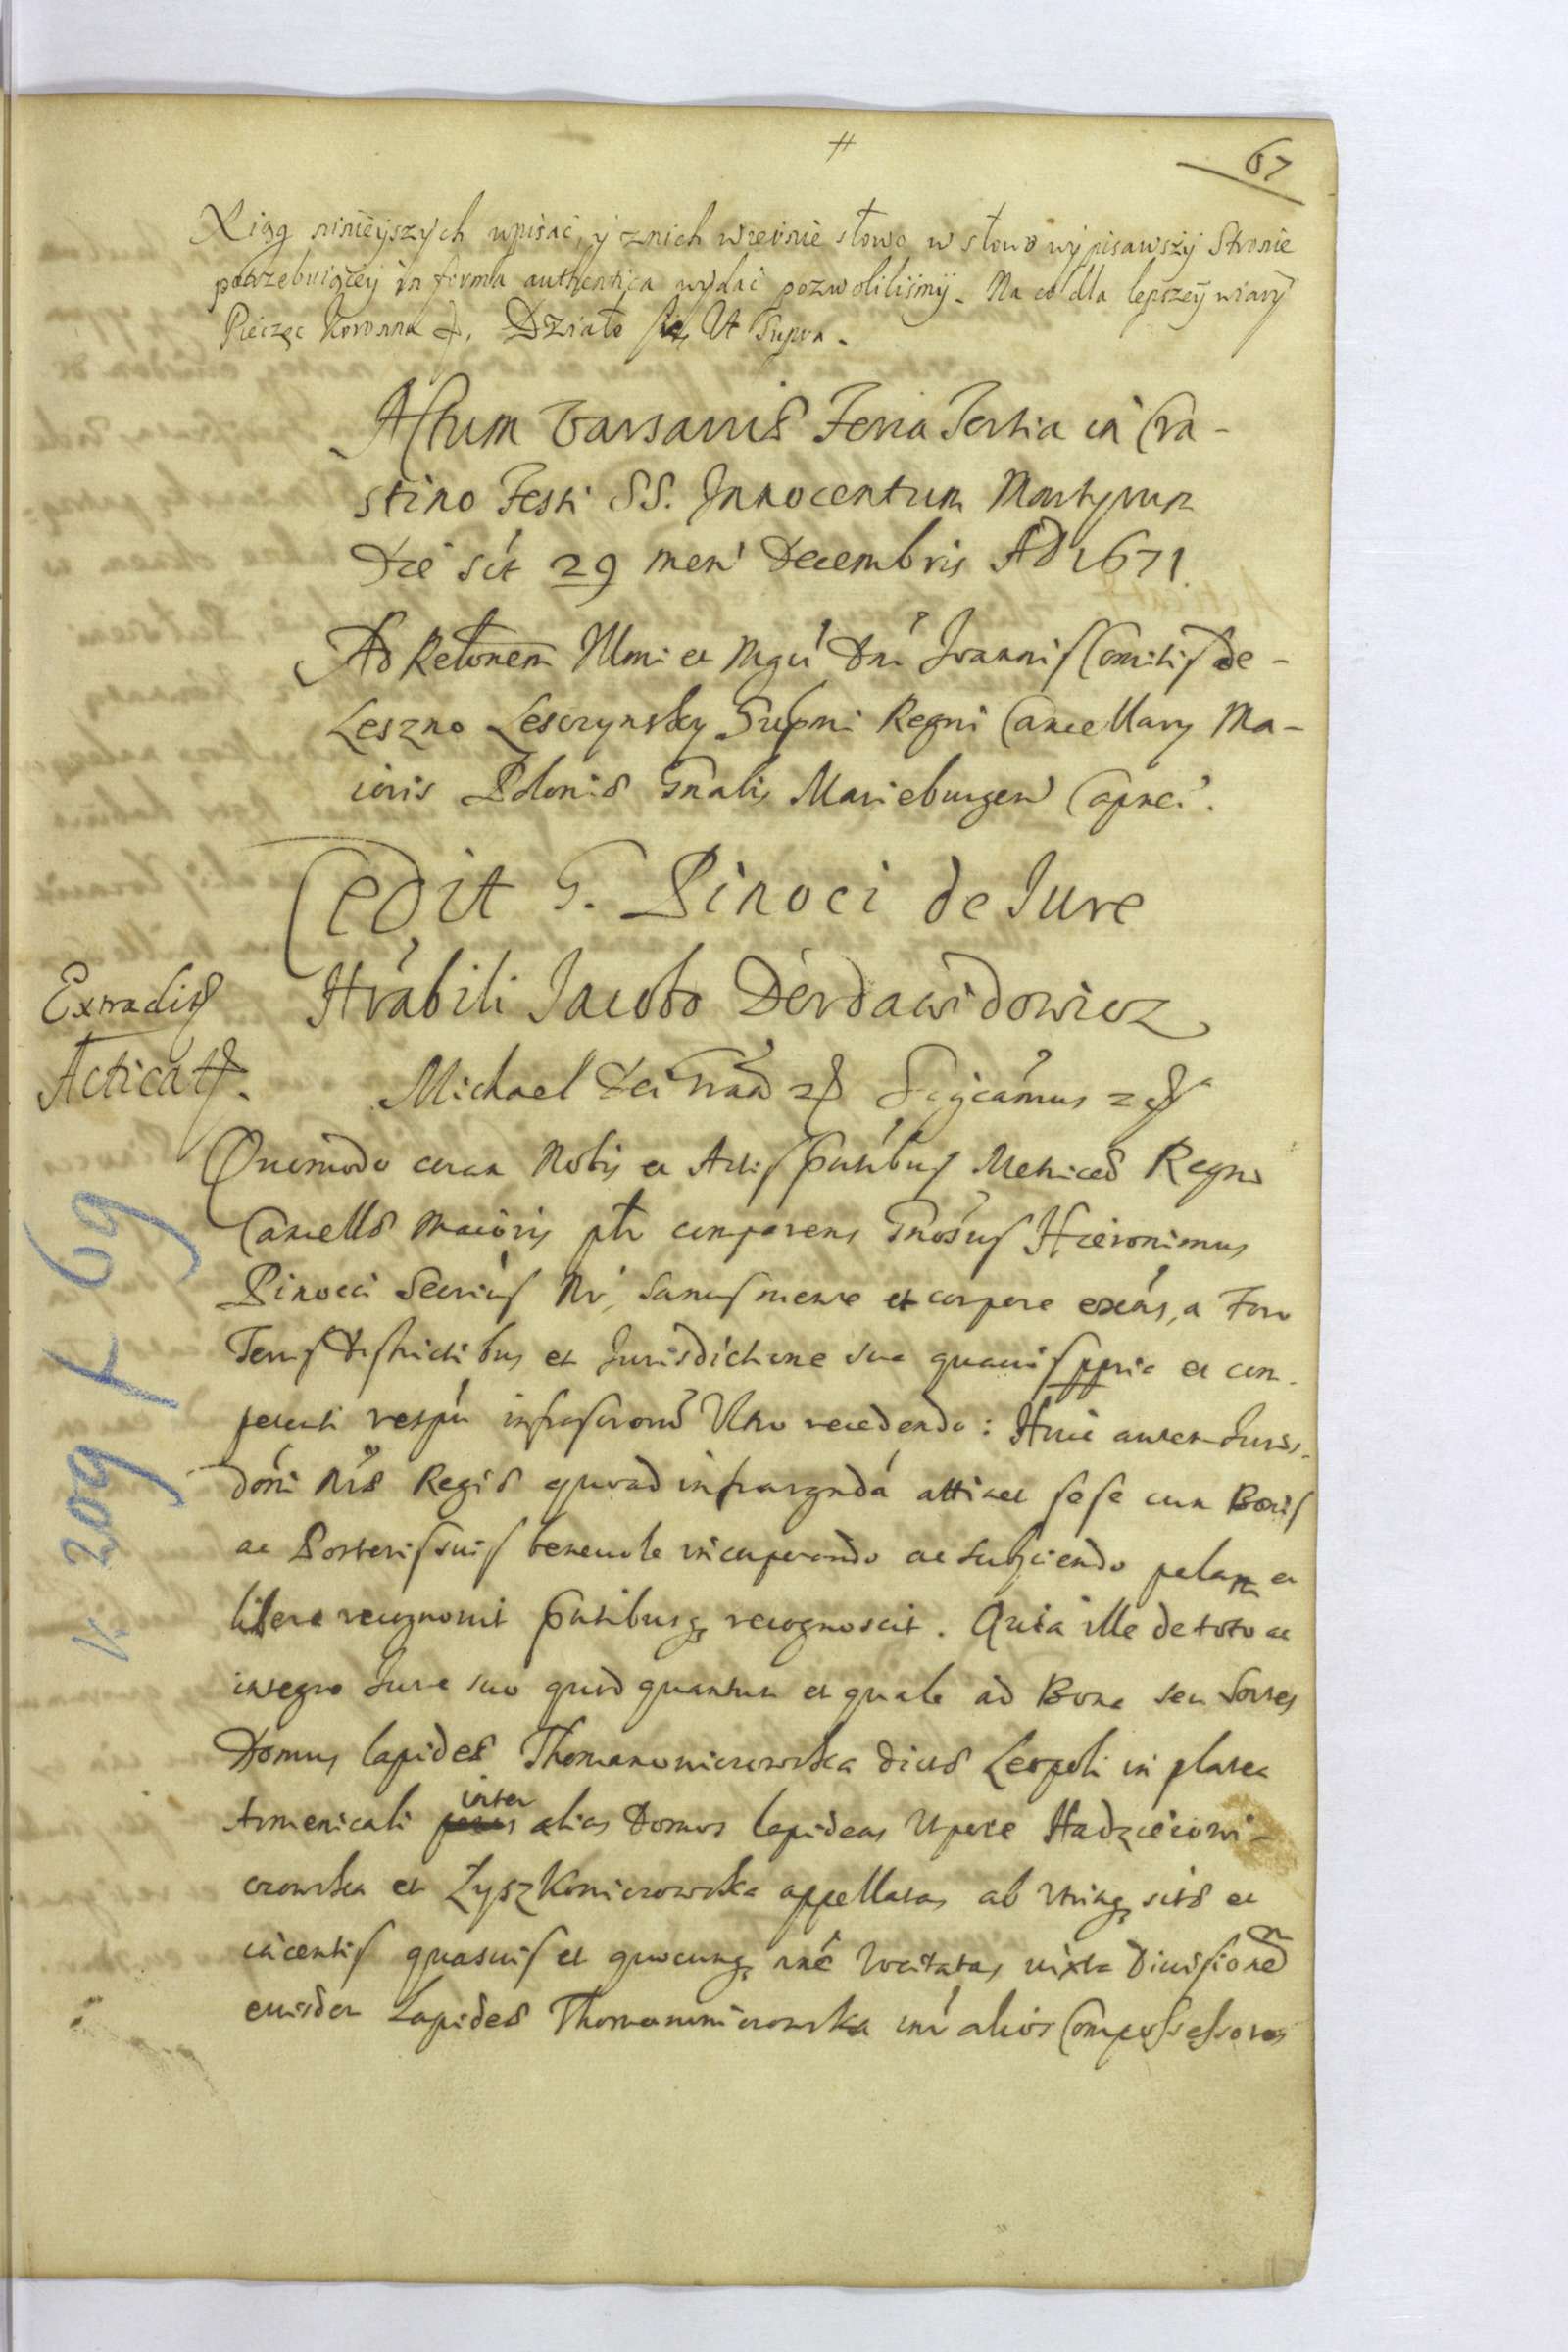 #
67
Xiąg ninieyszych wpisać, y znich wiernie słowo w słowo wypisawszy Stronie
potrzebuiącey in forma authentica wydać pozwoliliśmy. Na co dla lepszey wiary
Pieczęć Koronna &. Działo się Ut Supra.
Actum Varsaviæ Feria Tertia in Cra-
stino Festi SS. Innocentum Martyrum
Die sct 29 men' Decembris AD 1671.
Ad Relonem Illmi et Mgci Dni Joannis Comitis de
Leszno Lesczynsky Supmi Regni Cancellarij Ma-
ioris Poloniæ Gnalis Marieburgen Capnei.
Cedit G. Pinoci de Jure
Hrabili Jacobo Derdawidowicz
Extradit
Acticat.
Michael Dei Gra & Sigcamus &
Quomodo coram Nobis et Actis pntibus Metrices Regni
Cancellæ Maioris plr comparens Gnosus Hieronimus
Pinocci Secrius Nr, sanus mente et corpore exens, a Foro
Terris Districtibus et Jurisdictione sua quavis ppria et com-
petenti respu infrascrorum Vltro recedendo: Huic autem Juris-
doni Nræ Regiæ quoad infrascrnda attinet sese cum Bonis
ac Posteris suis benevole incorporando ac subjciendo palam et
libere recognovit pntibusq recognoscit. Quia ille de toto ac
integro Jure suo quod quantum et quale ad Bona seu Sortes
Domus lapideæ Thomanowiczowska dictæ Leopoli in platea
Armenicali inter alias Domos lapideas Utpote Hadziejowi-
czowska et Zyszkowiczowska appellatas ab utrinq sitæ et
iacentis quasvis et quocunq nne vocitatas, iuxta Divisionem
eiusdem Lapideæ Thomanowiczowska inr alios Compossessores
K 209 k 69